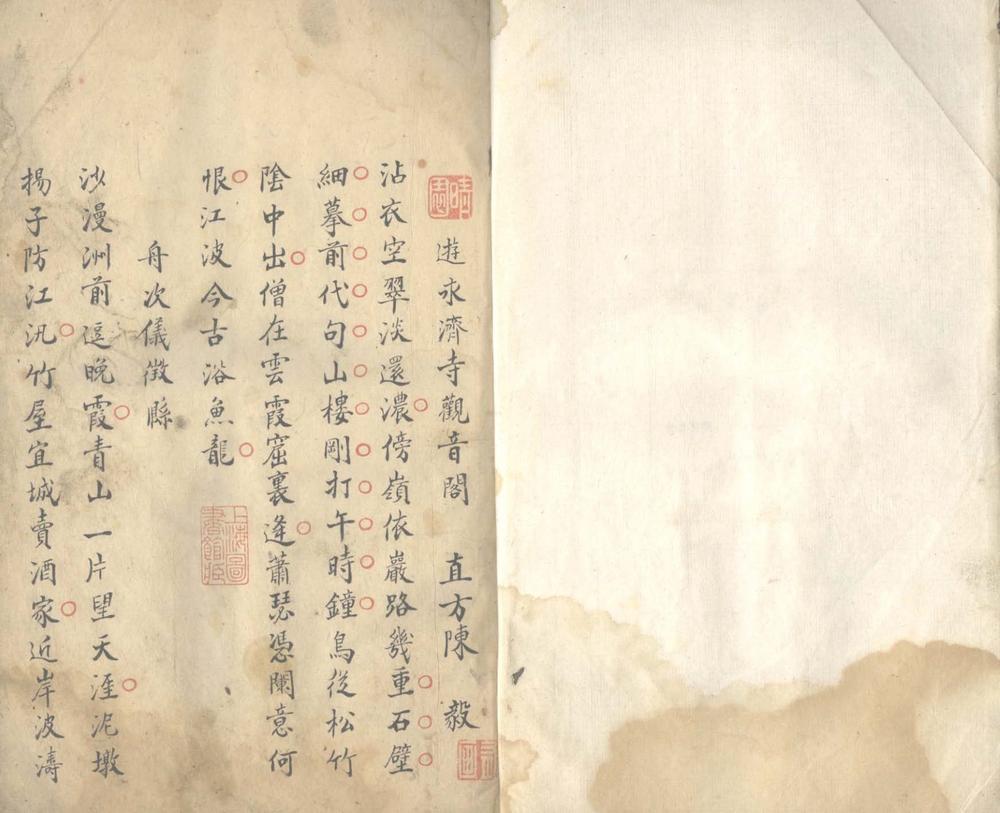 遊永濟寺觀音閣 直方陳毅
沾衣空翠淡還濃傍嶺依巖路幾重石壁
細摹前代句山樓剛打午時鐘鳥從松竹
陰中出僧在雲霞窟裏逢蕭瑟憑闌意何
恨江波今古浴魚龍
上海圖書館藏
舟次儀徵縣
沙漫洲前逗晚霞青山一片望天涯泥墩
揚子防江汛竹屋宜城賣酒家近岸波濤